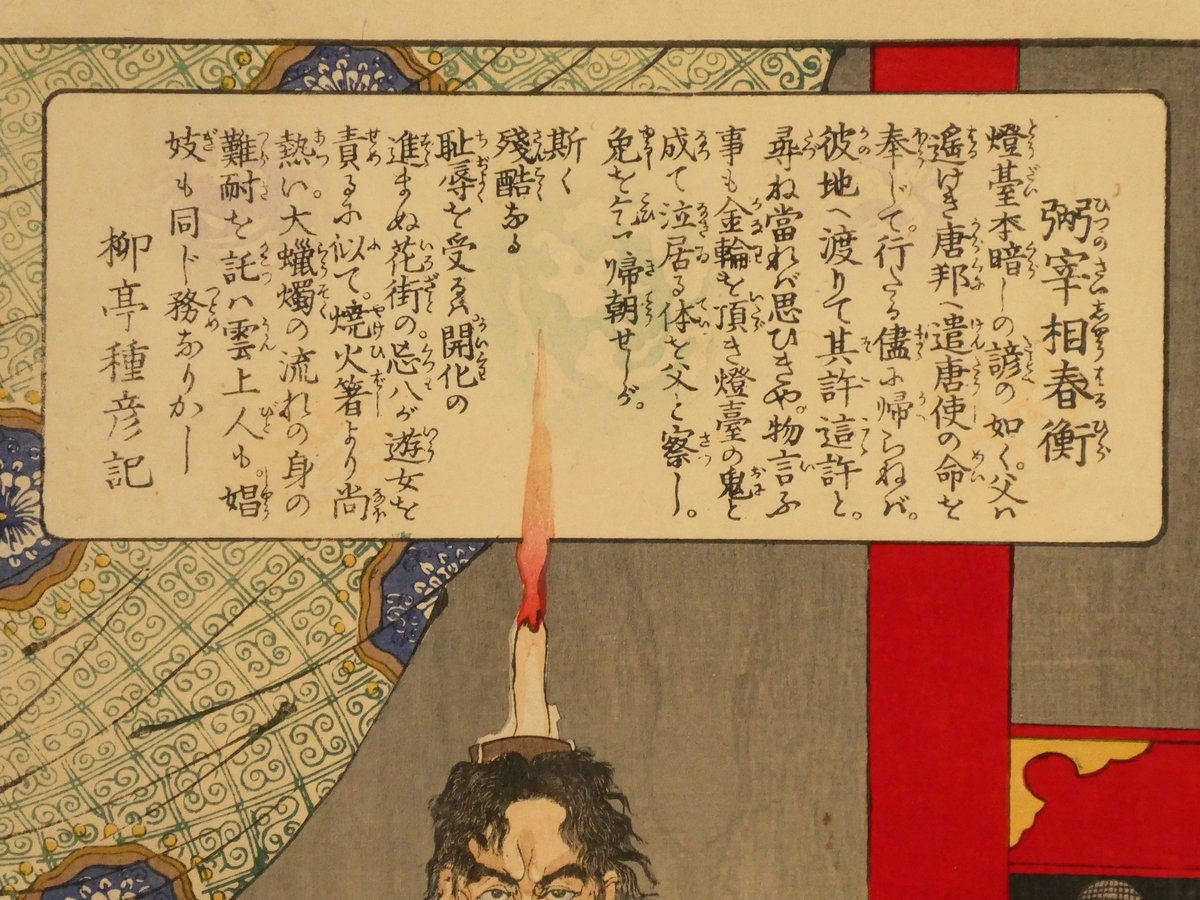 弼宰相春衡
燈臺本暗しの諺の如く。父ハ
遥けき唐邦へ遣唐使の命を
奉じて。行たる儘に帰らねバ。
彼地へ渡りて其許這許と。
尋ね當れバ思ひきや。物言ふ
事も金輪を頂き燈臺の鬼と
成て泣居る体を父と察し。
免を乞て帰朝せしが。
斯く
残酷なる
耻辱を受るハ開化の
進まぬ花街の。忘八が遊女を
責るに似て。焼火箸より尚
熱い。大蠟燭の流れの身の
難耐を託ハ雲上人も娼
妓も同じ務なりかし
柳亭種彦記